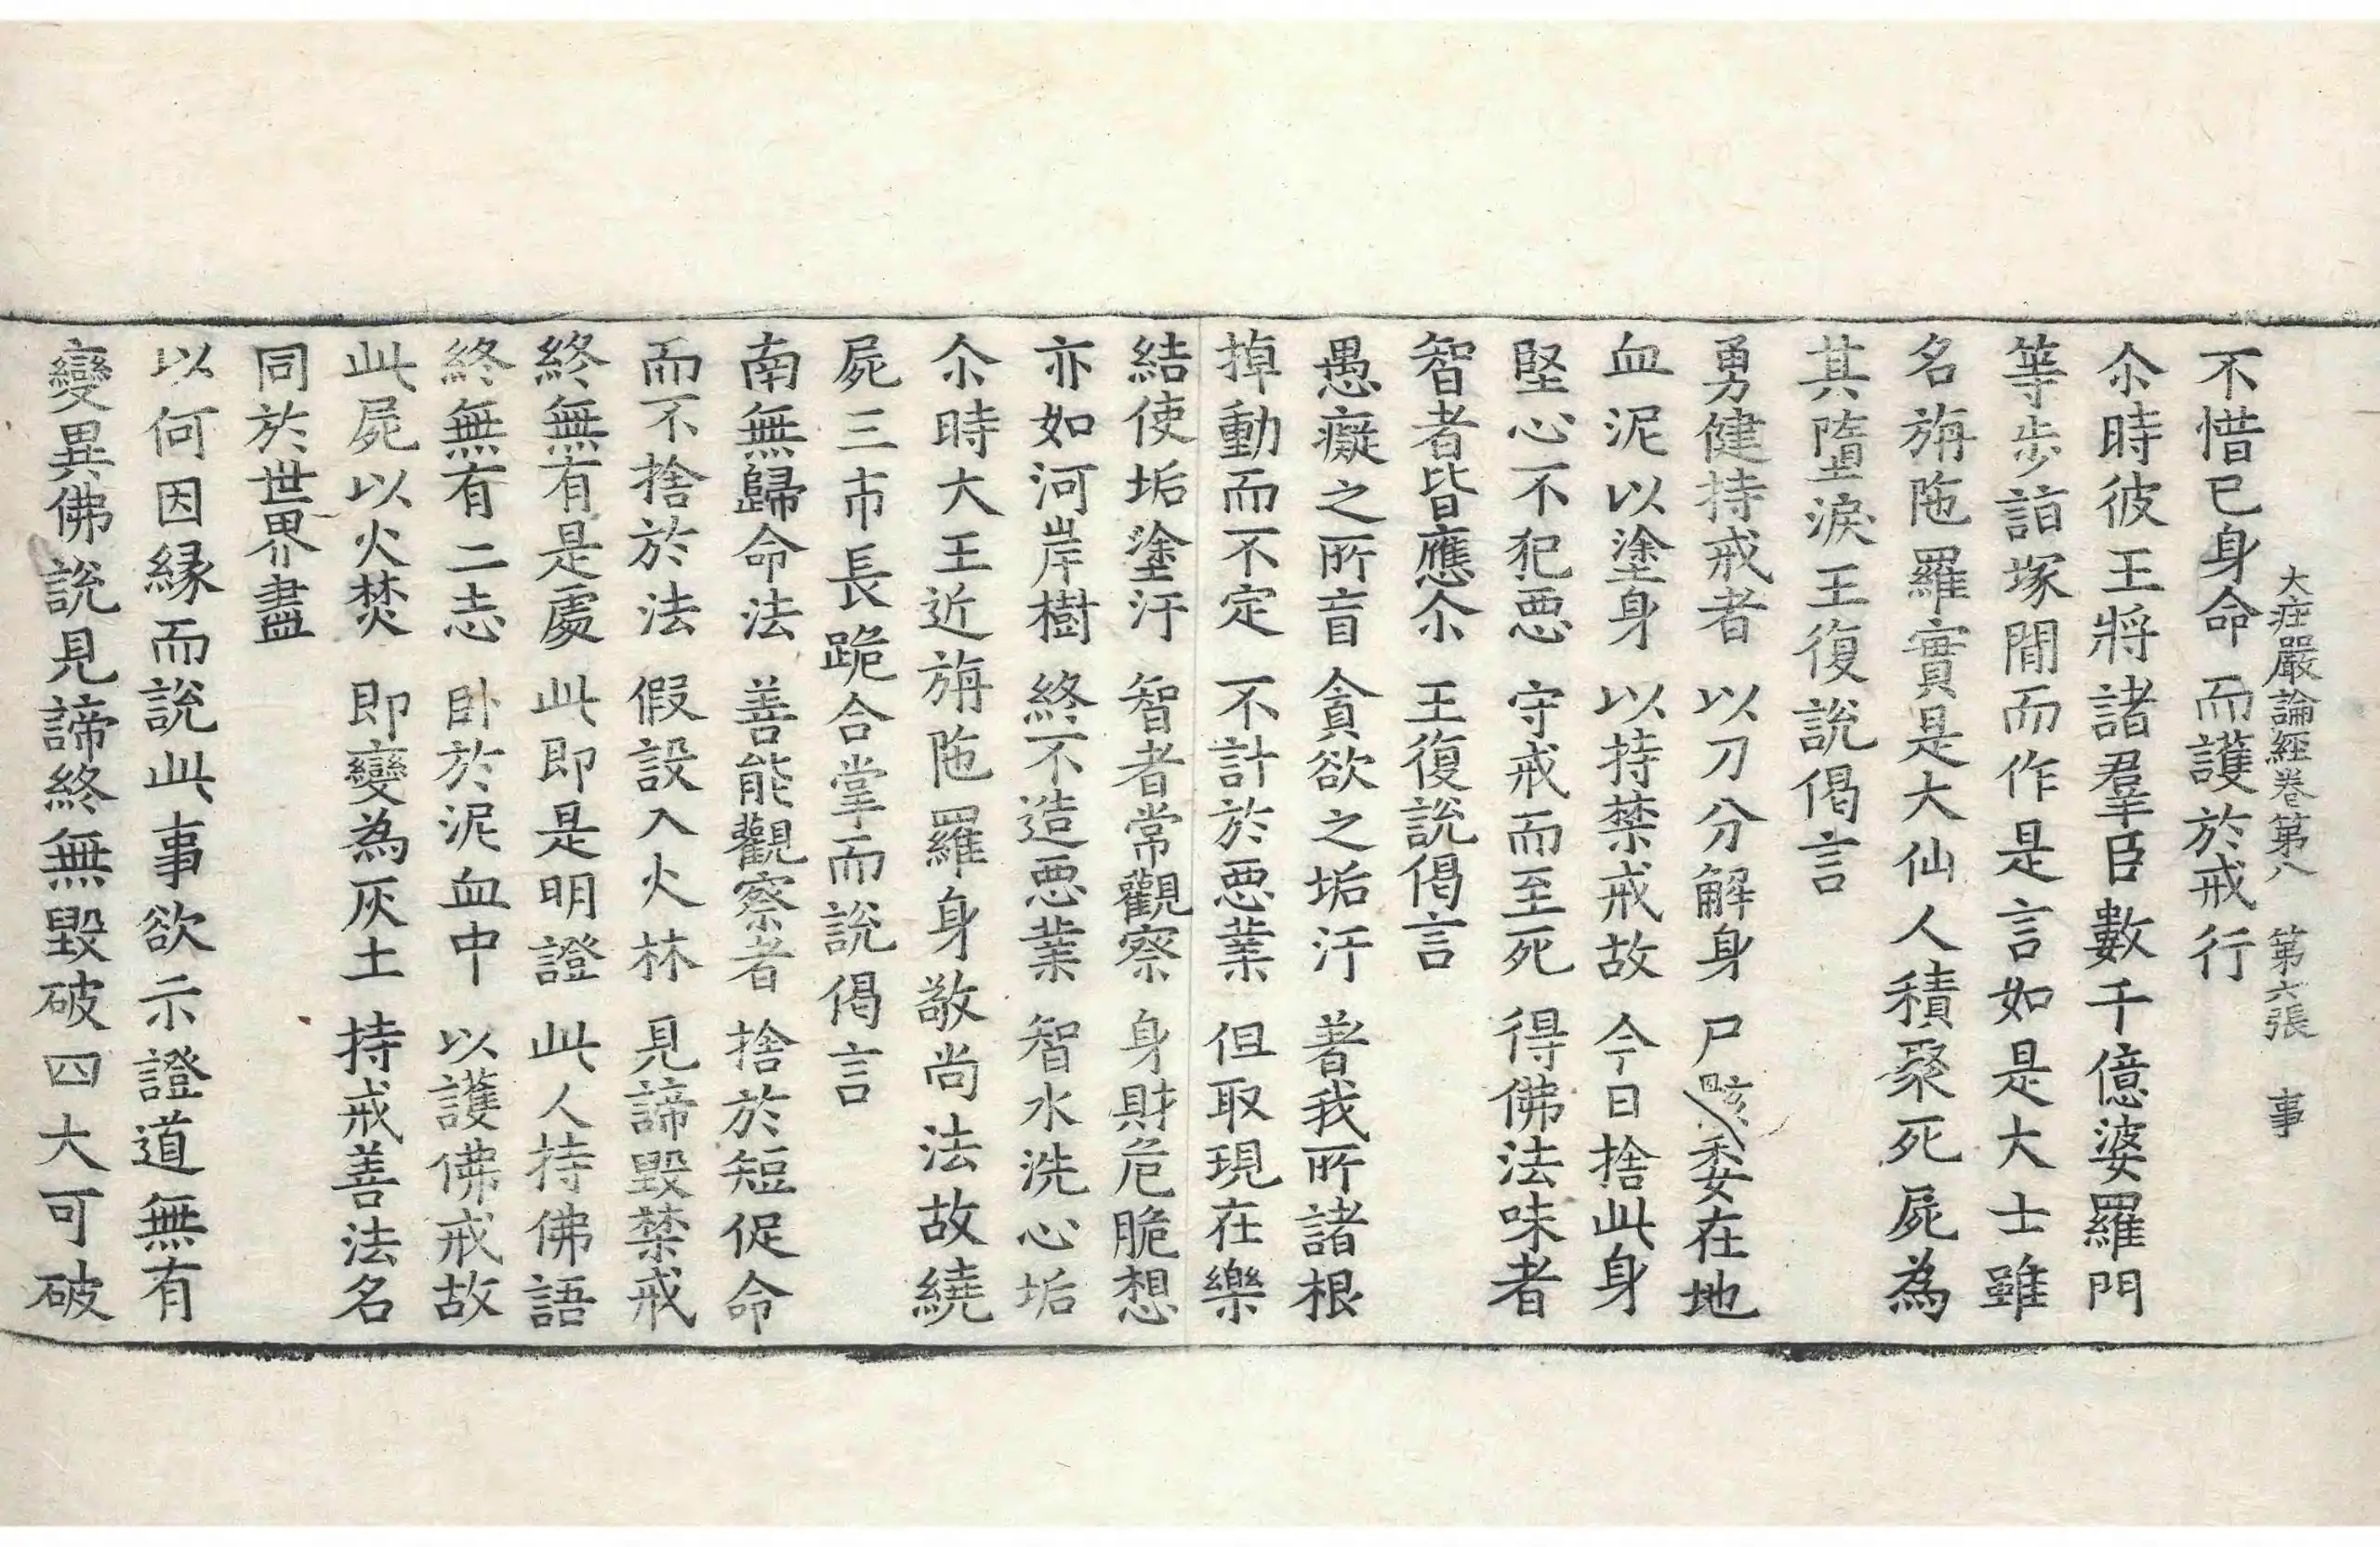 大庄嚴論經卷第八 第六張 事
不惜已身命 而護於戒行
尒時彼王將諸羣臣數千億婆羅門
等步詣塚間而作是言如是大士雖
名旃陁羅實是大仙人積聚死屍為
其墮淚王復說偈言
勇健持戒者 以刀分解身 尸骸委在地
血泥以塗身 以持禁戒故 今日捨此身
堅心不犯惡 守戒而至死 得佛法味者
智者皆應尒 王復說偈言
愚癡之所盲 貪欲之垢汙 著我所諸根
掉動而不定 不計於惡業 但取現在樂
結使垢塗汙 智者常觀察 身財危脆想
亦如河岸樹 終不造惡業 智水洗心垢
尒時大王近旃陁羅身敬尚法故繞
屍三帀長跪合掌而說偈言
南無歸命法 善能觀察者 捨於短促命
而不捨於法 假設入火林 見諦毀禁戒
終無有是處 此即是明證 此人持佛語
終無有二志 卧於泥血中 以護佛戒故
此屍以火焚 即變為灰土 持戒善法名
同於世界盡
以何因緣而說此事欲示證道無有
變異佛說見諦終無毀破四大可破